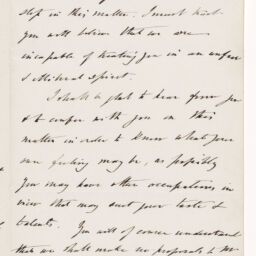 step in this matter. I must trust
you will believe that we are
incapable of treating you in an unfair
& illiberal spirit.
I shall be glad to hear from you
& to confer with you on this
matter in order to know what your
own feeling may be, as possibly
you may have other occupations in
view that may suit your taste &
talents. You will of course understand
that we shall make no proposals to